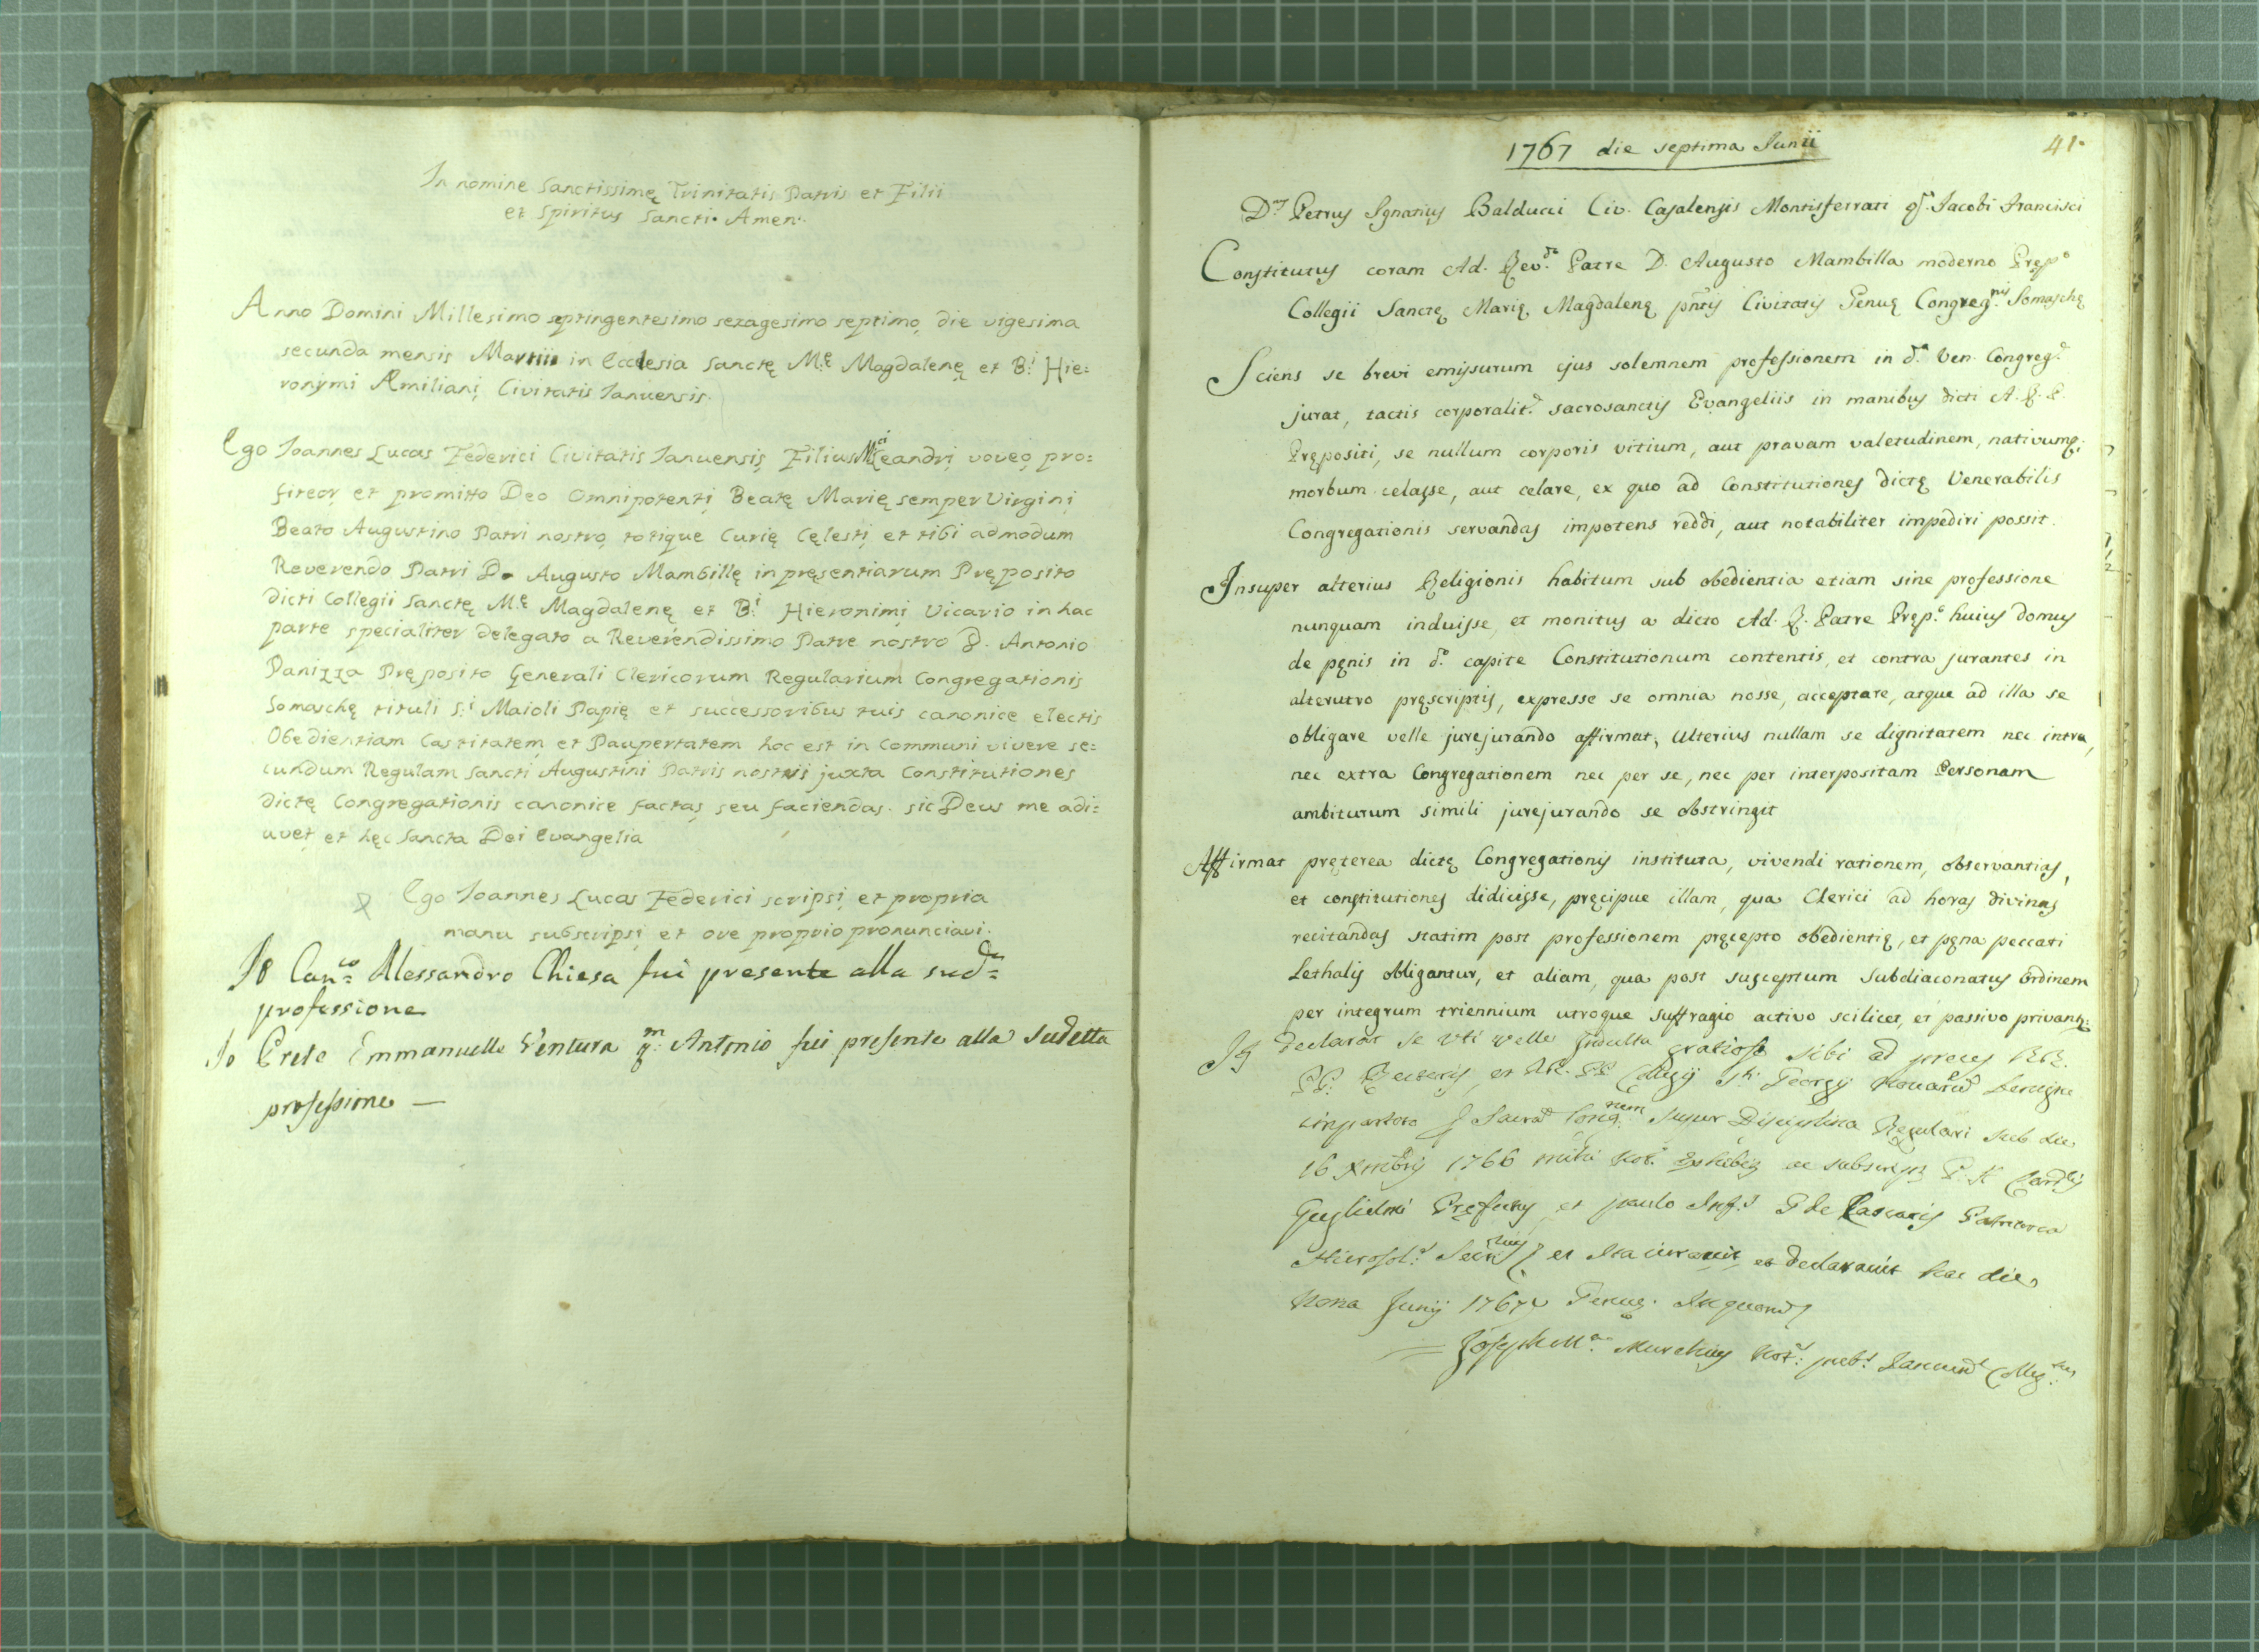 In nomine Sanctissimę Trinitatis Patris et Filii
et Spiritus Sancti. Amen.
Anno Domini Millesimo septingentesimo sexagesimo septimo, die vigesima
secunda mensis Martii in Ecclesia Sanctę M.ę Magdalenę et B.i Hie=
ronymi Æmiliani Civitatis Ianuensis.
Ego Ioannes Lucas Federici Civitatis Ianuensis Filius M.ci Leandri voveo, pro=
fiteor, et promitto Deo Omnipotenti, Beatę Marię semper Virgini,
Beato Augustino Patri nostro, totique Curię Cęlesti, et tibi admodum
Reverendo Patri D. Augusto Mambillę in pręsentiarum Pręposito
dicti Collegii Sanctę M.ę Magdalenę et B.i Hieronimi, Vicario in hac
parte specialiter delegato a Reverendissimo Patre nostro D. Antonio
Panizza Pręposito Generali Clericorum Regularium Congregationis
Somaschę tituli S.i Maioli Papię et successoribus tuis canonice electis
Obedientiam Castitatem, et Paupertatem hoc est in Communi vivere se=
cundum Regulam Sancti Augustini Patris nostri juxta Constitutiones
dictę Congregationis canonice factas, seu faciendas. Sic Deus me adi=
uvet, et hęc Sancta Dei Evangelia
Ego Ioannes Lucas Federici scripsi, et propria
manu subscripsi, et ore proprio pronunciavi.
Io Can.co Alessandro Chiesa fui presente alla sud.a=
professione
Io Prete Emmanuelle Ventura q.m Antonio fui presente alla sudetta
professione —
1767 die septima Iunii
41.
D.s Petrus Ignatius Balducci Civ. Casalensis Montisferrati q. Iacobi Francisci
Constitutus coram Ad. Rev.do Patre D. Augusto Mambilla moderno Pręp.o
Collegii Sanctę Marię Magdalenę pńtis Civitatis Genuę Congreg.nis Somaschę
Sciens se brevi emissurum ejus solemnem professionem in d.a Ven. Congreg.e
jurat, tactis corporalit.r sacrosanctis Evangeliis in manibus dicti A. R. P.
Prępositi, se nullum corporis vitium, aut pravam valetudinem, nativumq;
morbum celasse, aut celare, ex quo ad Constitutiones dictę Venerabilis
Congregationis servandas impotens reddi, aut notabiliter impediri possit.
Insuper alterius Religionis habitum sub obedientia etiam sine professione
nunquam induisse, et monitus a dicto Ad. R. Patre Pręp.o huius domus
de pęnis in d.o capite Constitutionum contentis, et contra jurantes in
alterutro pręscriptis, expresse se omnia nosse, acceptare, atque ad illa se
obligare velle jurejurando affirmat; Ulterius nullam se dignitatem nec intra,
nec extra Congregationem nec per se, nec per interpositam Personam
ambiturum simili jurejurando se obstringit
Affirmat pręterea dictę Congregationis instituta, vivendi rationem, observantias,
et constitutiones didicisse, pręcipue illam, qua Clerici ad horas divinas
recitandas statim post professionem pręcepto obedientię, et pęna peccati
Lethalis obligantur, et aliam, qua post susceptum Subdiaconatus Ordinem
per integrum triennium utroque suffragio activo scilicet, et passivo privant.r
declarat se uti velle Indulto gratiose sibi ad preces RR.
PP. Rectoris, et Collegij S.ti Georgij benigne
super Disciplina Regulari sub die
16 Xmbris 1766 mihi Not.o
Guglielmi Pręfectus et paulo Inf.s P. de Lascaris Patriarca
Hierosol. et ita iuravit, et declaravit hac die
Nona Junij 1767
Joseph M.a not.s pub.s